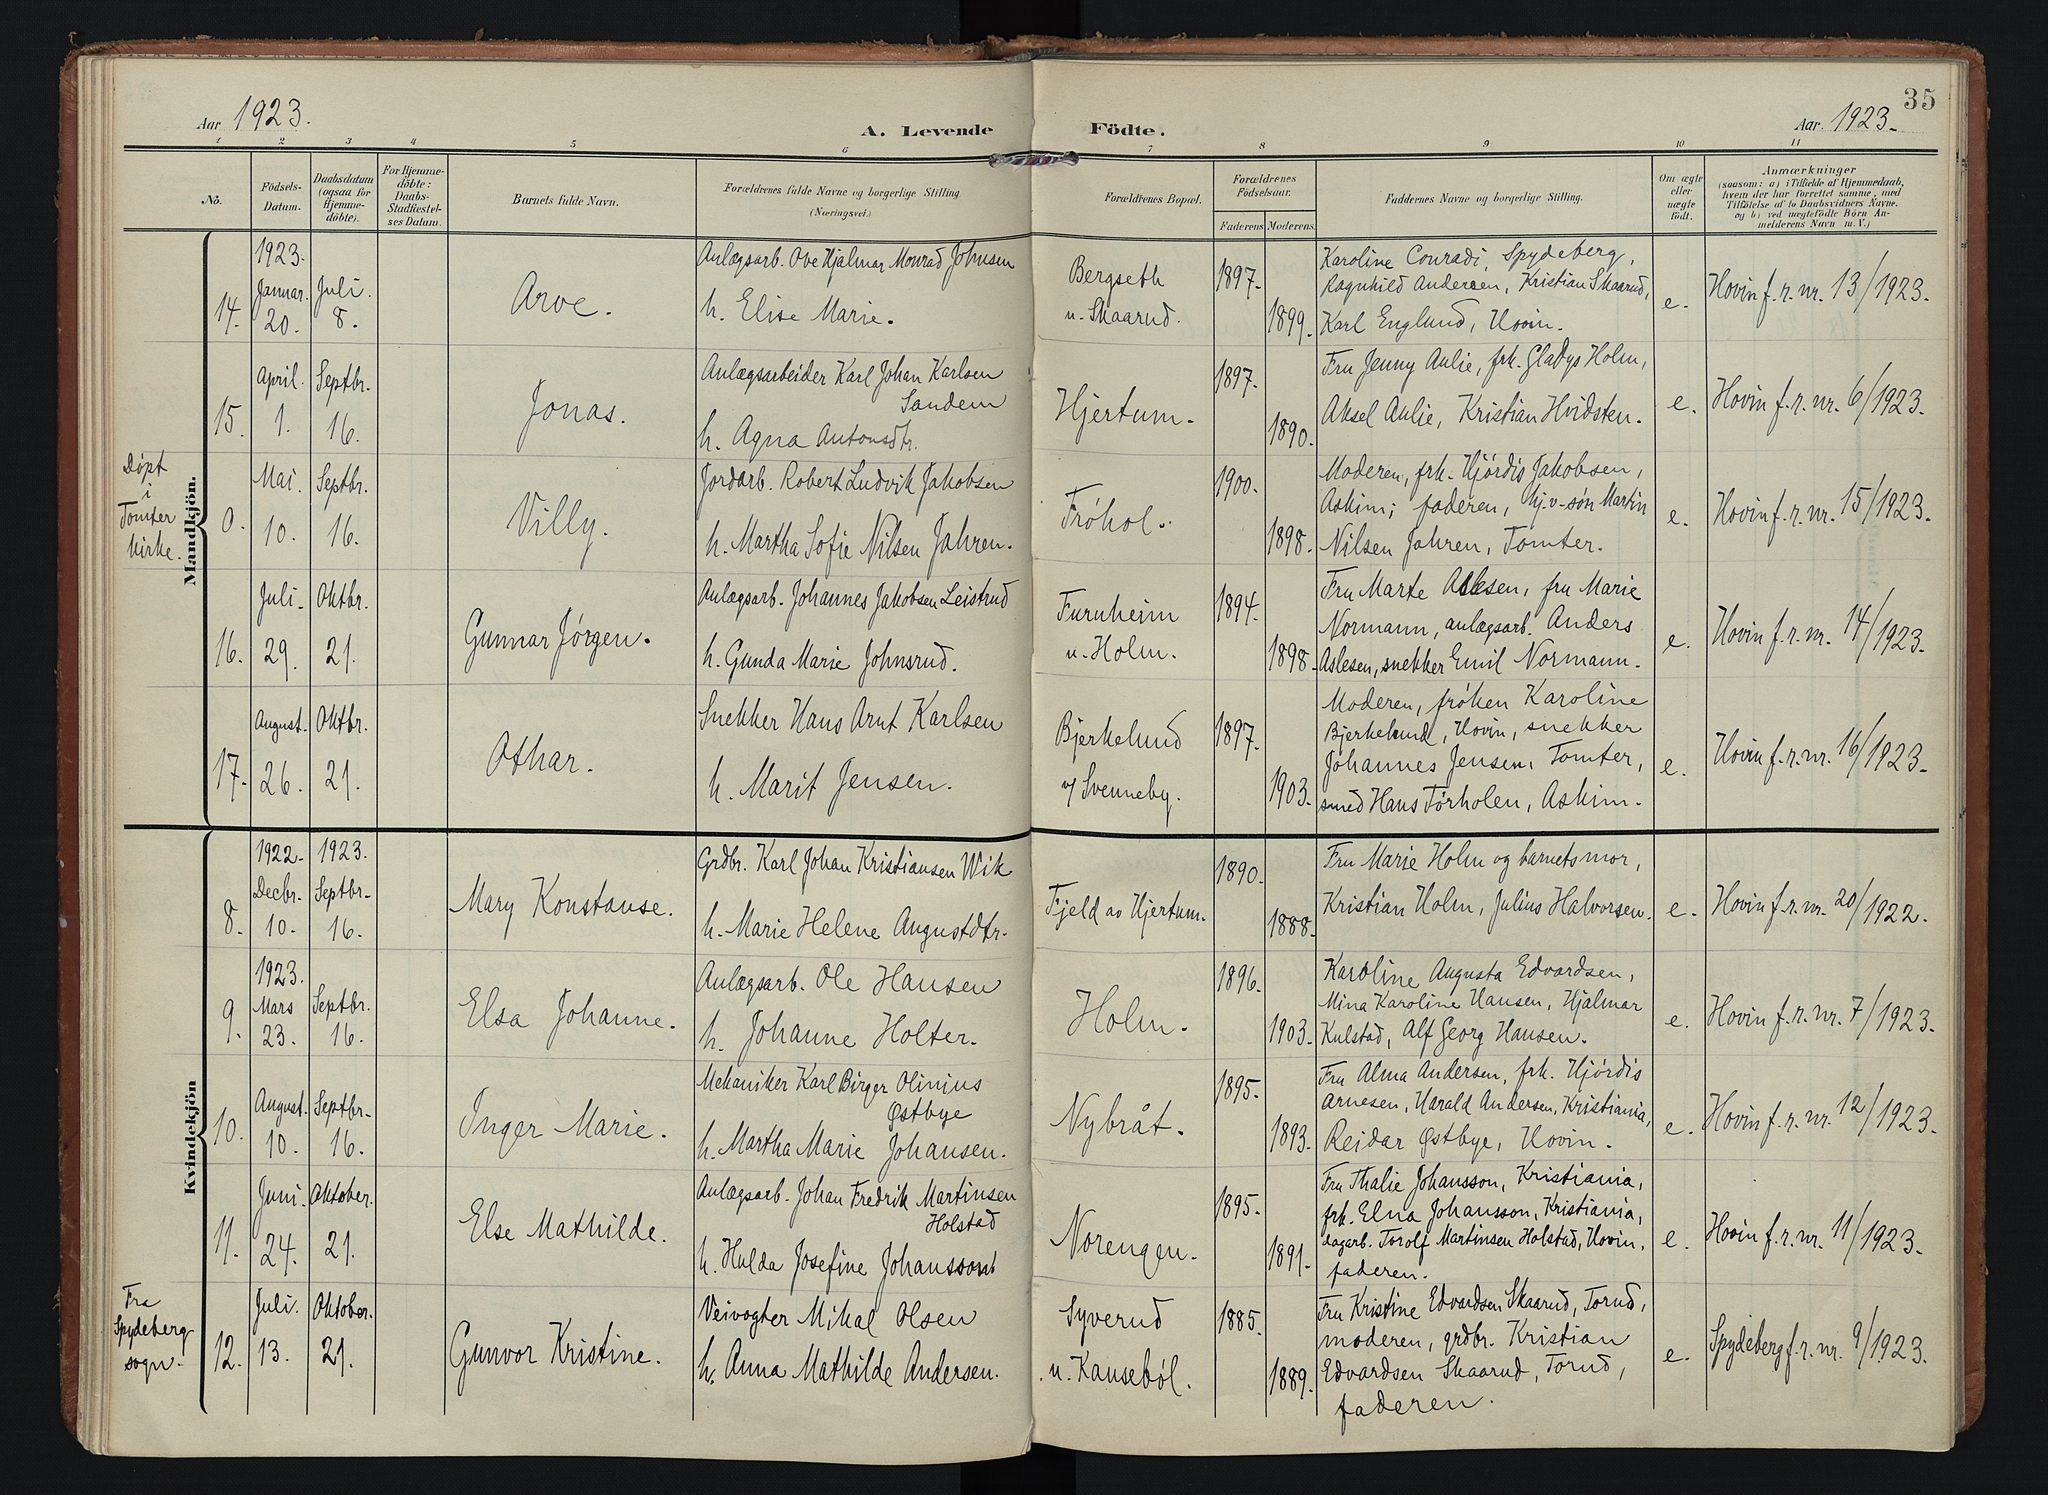 35
Aar 1923.
A. Levende Födte.
Aar 1923.
1 2 3 4 5 6 7 8 9 10 11
No.
Födsels-
Datum.
Daabsdatum
(ogsaa for
Hjemme-
döbte).
For Hjemme-
döbte:
Daabs-
Stadfæstel-
ses Datum.
Barnets fulde Navn.
Forældrenes fulde Navne og borgerlige Stilling.
(Næringsvei.)
Forældrenes Bopæl.
Forældrenes
Födselsaar.
Faderens Moderens
Faddernes Navne og borgerlige Stilling.
Om ægte
eller
uægte
födt.
Anmærkninger
(saasom: a) i Tilfælde af Hjemmedaab,
hvem der har forrettet samme, med
Tilföielse af to Daabsvidners Navne,
og b) ved uægtefödte Börn An-
melderens Navn m. V.)
Mandkjön.
14.
1923.
Januar.
20.
Juli.
8.
Arve.
Anlægsarb. Ove Hjalmar Monrad Johnsen
h. Elise Marie.
Bergseth
u. Skaarud.
1897.
1899.
Karoline Conradi, Spydeberg,
Ragnhild Andersen, Kristian Skaarud,
Karl Englund, Hovin.
e.
Hovin f. r. nr. 13/1923.
15.
April.
1.
Septbr.
16.
Jonas.
Anlægsarbeider Karl Johan Karlsen
Sandem
h. Agna Antonsdtr.
Hjertum.
1897.
1890.
Fru Jenny Aulie, frk. Gladys Holm,
Aksel Aulie, Kristian Hvidsten.
e.
Hovin f. r. nr. 6/1923.
Døpt
i
Tomter
kirke.
0.
Mai.
10.
Septbr.
16.
Villy.
Jordarb. Robert Ludvik Jakobsen
h. Martha Sofie Nilsen Jahren.
Frøhol.
1900.
1898.
Moderen, frk. Hjørdis Jakobsen,
Askim; faderen, hj.v-søn Martin
Nilsen Jahren, Tomter.
e.
Hovin f. r. nr. 15/1923.
16.
Juli.
29.
Oktbr.
21.
Gunnar Jørgen.
Anlægsarb. Johannes Jakobsen Leistrud
h. Gunda Marie Johnsrud.
Furuheim
u. Holm.
1894.
1898.
Fru Marte Aslesen, fru Marie
Normann, anlægsarb. Anders
Aslesen, snekker Emil Normann.
e.
Hovin f. r. nr. 14/1923.
17.
August.
26.
Oktbr.
21.
Othar.
Snekker Hans Arnt Karlsen
h. Marit Jensen.
Bjerkelund
v/ Svenneby.
1897.
1903.
Moderen, frøken Karoline
Bjerkelund, Hovin, snekker
Johannes Jensen, Tomter,
smed Hans Tørholen, Askim.
e.
Hovin f. r. nr. 16/1923.
Kvindekjön
8.
1922.
Decbr.
10.
1923.
Septbr.
16.
Mary Konstanse.
Grdbr. Karl Johan Kristiansen Wik
h. Marie Helene Augustdtr.
Fjeld av Hjertum.
1890.
1888.
Fru Marie Holm og barnets mor,
Kristian Holm, Julius Halvorsen.
e.
Hovin f. r. nr. 20/1922.
9.
1923.
Mars
23.
Septbr.
16.
Elsa Johanne.
Anlægsarb. Ole Hansen
h. Johanne Holter.
Holm.
1896.
1903.
Karoline Augusta Edvardsen,
Mina Karoline Hansen, Hjalmar
Kulstad, Alf Georg Hansen.
e.
Hovin f. r. nr. 7/1923.
10.
August.
10.
Septbr.
16.
Inger Marie.
Mekaniker Karl Birger Olinius
Østbye
h. Martha Marie Johansen.
Nybråt.
1895.
1893.
Fru Alma Andersen, frk. Hjørdis
Arnesen, Harald Andersen, Kristiania,
Reidar Østbye, Hovin.
e.
Hovin f. r. nr. 12/1923.
11.
Juni.
24.
Oktober.
21.
Else Mathilde.
Anlægsarb. Johan Fredrik Martinsen
Holstad
h. Hulda Josefine Johansson
Norengen.
1895.
1891.
Fru Thalie Johansson, Kristiania,
frk. Elna Johansson, Kristiania,
dagarb. Torolf Martinsen Holstad, Hovin,
faderen.
e.
Hovin f. r. nr. 11/1923.
Fra
Spydeberg
sogn.
12.
Juli.
13.
Oktober.
21.
Gunvor Kristine.
Veivogter Mikal Olsen
h. Anna Mathilde Andersen.
Syverud
u. Kausebøl.
1885.
1889.
Fru Kristine Edvardsen Skaarud, Torud,
moderen, grdbr. Kristian
Edvardsen Skaarud, Torud,
faderen.
e.
Spydeberg f. r. nr. 9/1923.